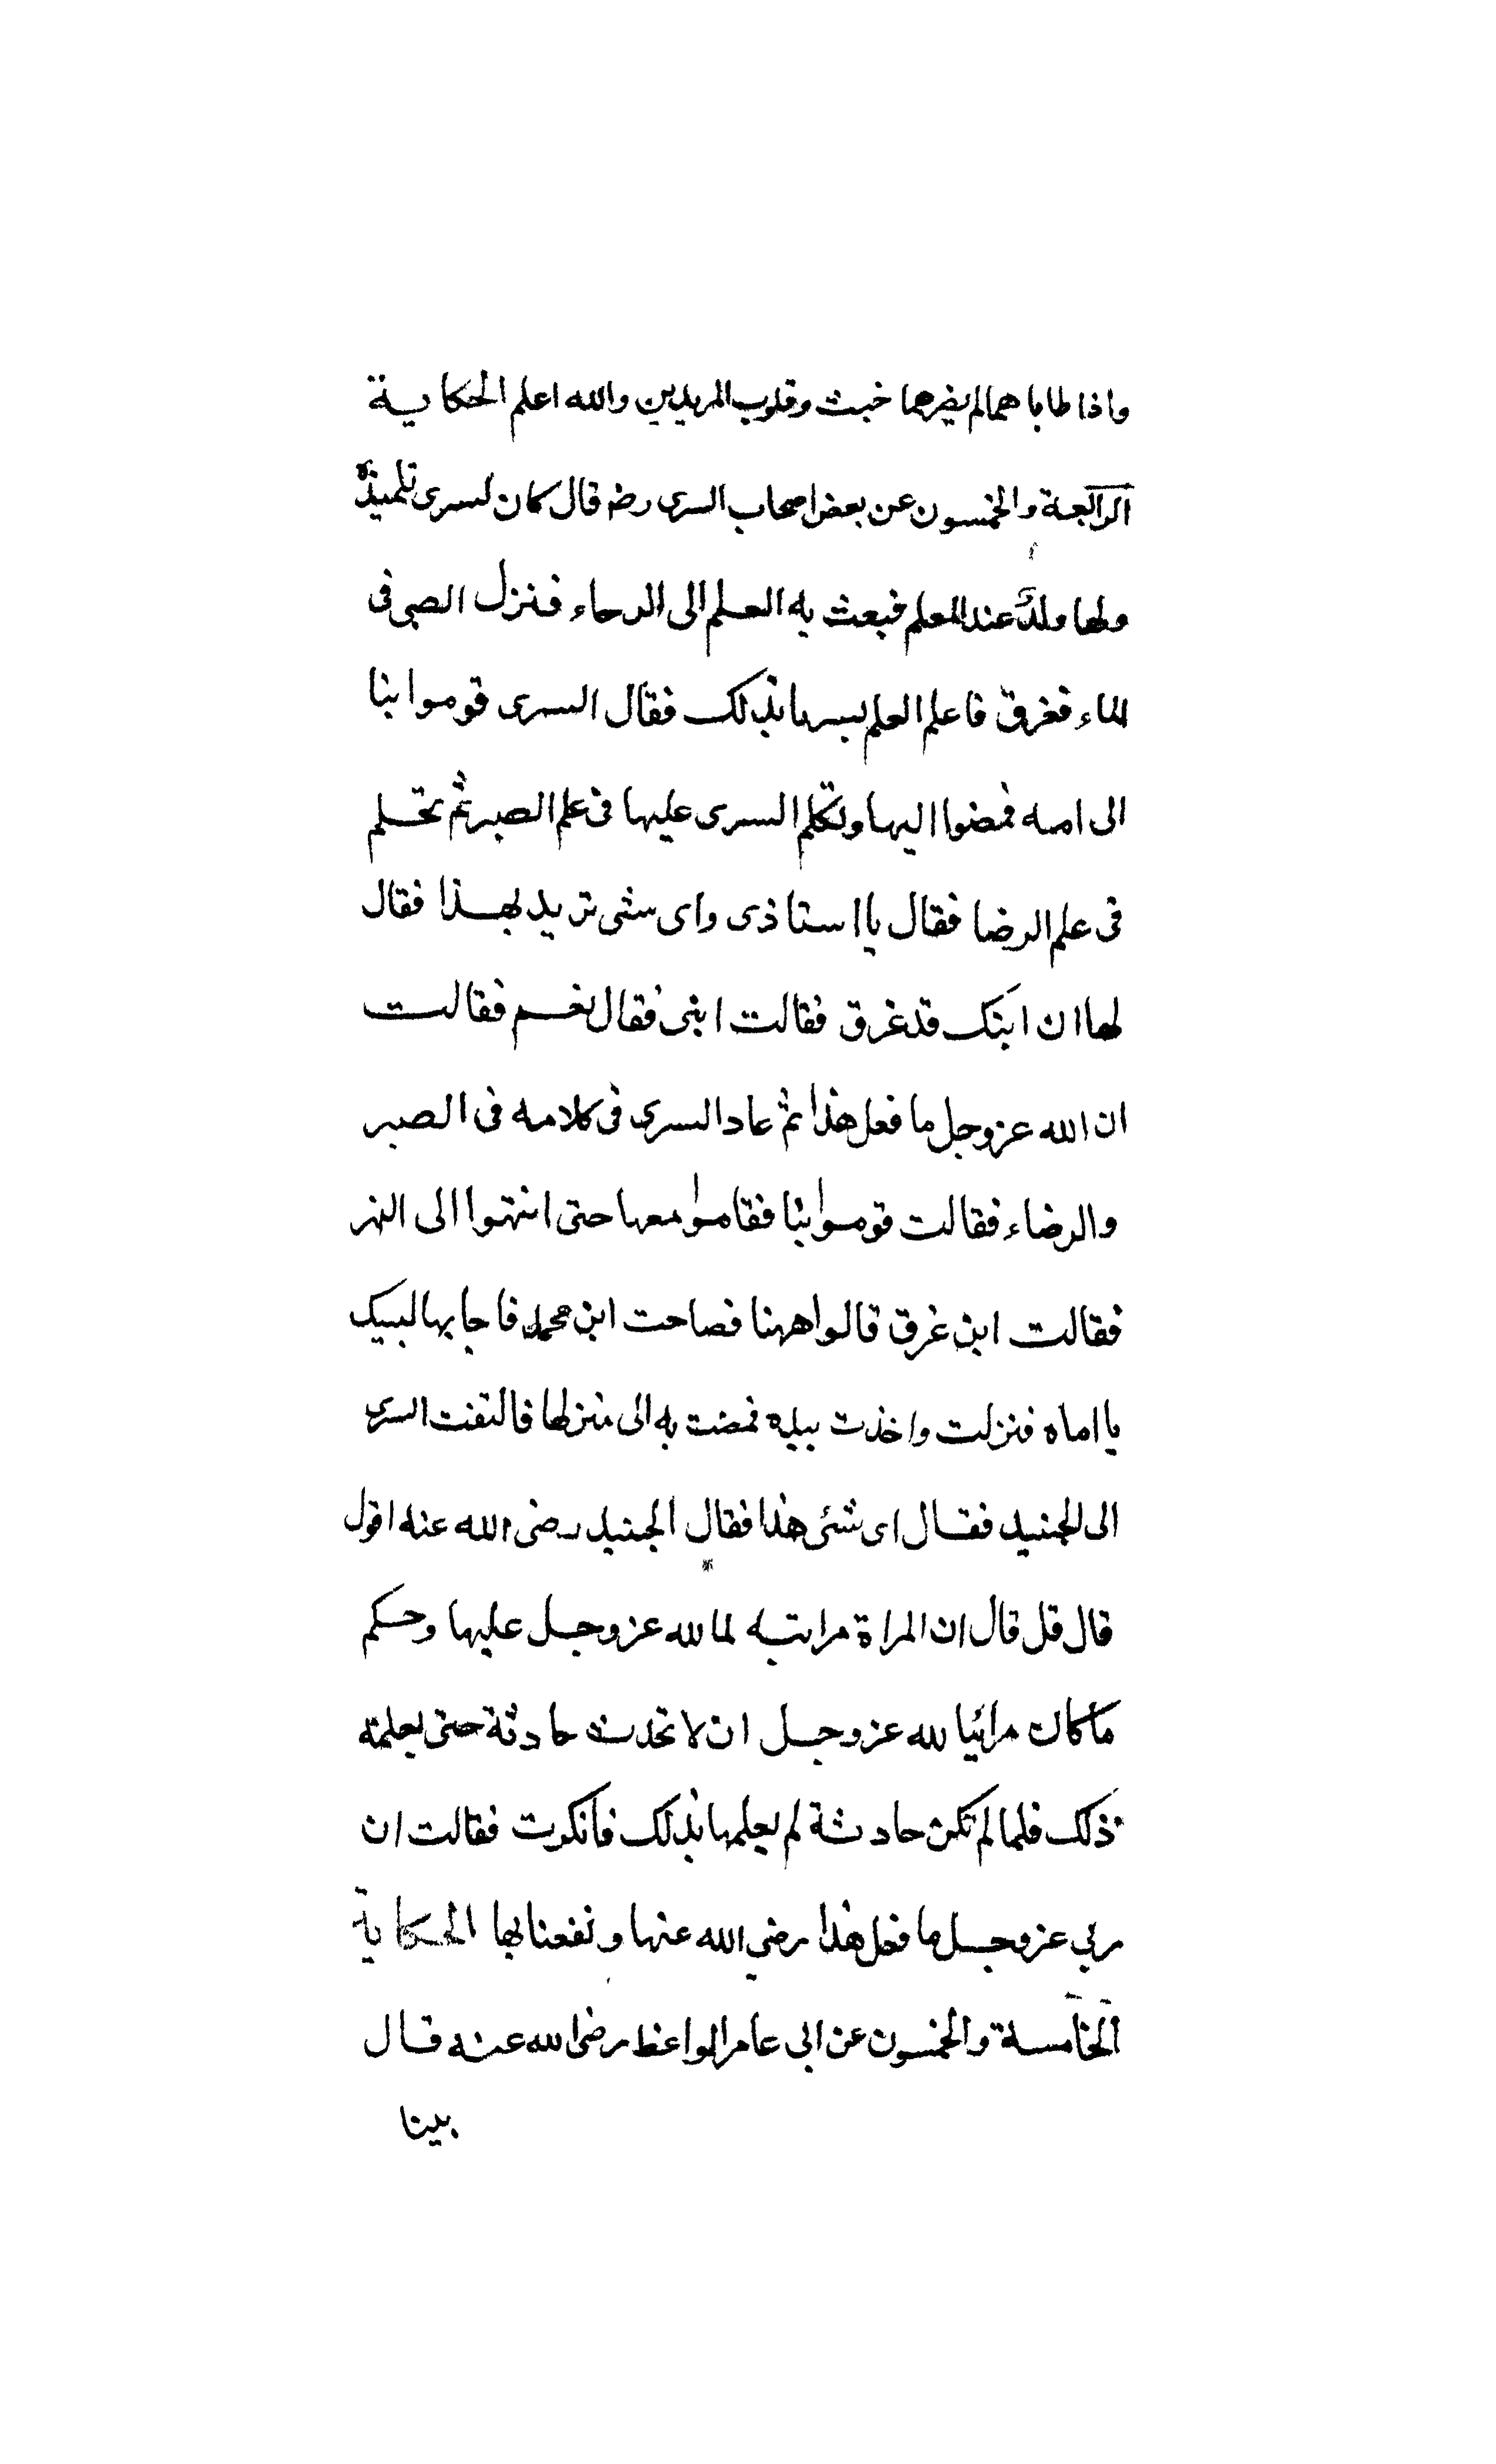 واذا طابا هما لم يضرهما خبث وقلوب المريدين والله اعلم الحكاية
الرابعة والخمسون عن بعض اصحاب السرى رضه قال كان لسرى تلميذة
ولها ولد عند المعلم فبعث به العلم الى الرحاء فنزل الصبى فى
الماء فغرق فاعلم العلم لسريا بذلك فقال السرى قوموا بنا
الى امه فمضوا اليها وتكلم السرى عليها فى علم الصبر ثم تكلم
فى علم الرضا فقال يا استاذى واى شى تريد بهذا فقال
لها ان ابنك قد غرق فقالت ابنى فقال نعم فقالت
ان الله عز وجل ما فعل هذا ثم عاد السرى فى كلامه فى الصبر
والرضاء فقالت قوموا بنا فقاموا معها حتى انتهوا الى النهر
فقالت اين غرق قالوا ههنا فصاحت ابن محمد فاجابها لبيك
يا اماه فنزلت واخذت بيده فمضت به الى منزلها فالتفت السرى
الى الجنيد فقال اى شئ هذا فقال الجنيد رضى الله عنه اقول
قال قل قال ان المراة مراتبه لما لله عز وجل عليها وحكم
ما كان مرائيا لله عز وجل ان لا تحدث حادثة حتى يعلمه
ذلك فلما لم تكن حادثة لم يعلمها بذلك فانكرت فقالت ان
ربي عز وجل ما فعل هذا رضي الله عنها ونفعنا بها الحكاية
الخامسة والخمسون عن ابى عامر الواعظ رضى الله عنه قال
بينا